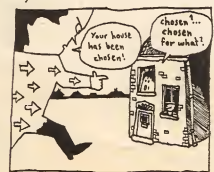 Your house
has been
chosen!
chosen?...
chosen
for what??